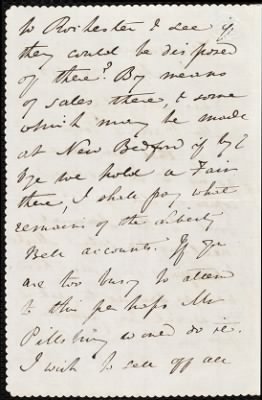 to Rochester & see if
they could be disposed
of there? By means
of sales there, & some
which may be made
at New Bedford if by &
bye we hold a Fair
there, I shall pay what
remains of the Liberty
Bell accounts. If you
are too busy to attend
to this perhaps Mr
Pillsbury would do it.
I wish to sell off all